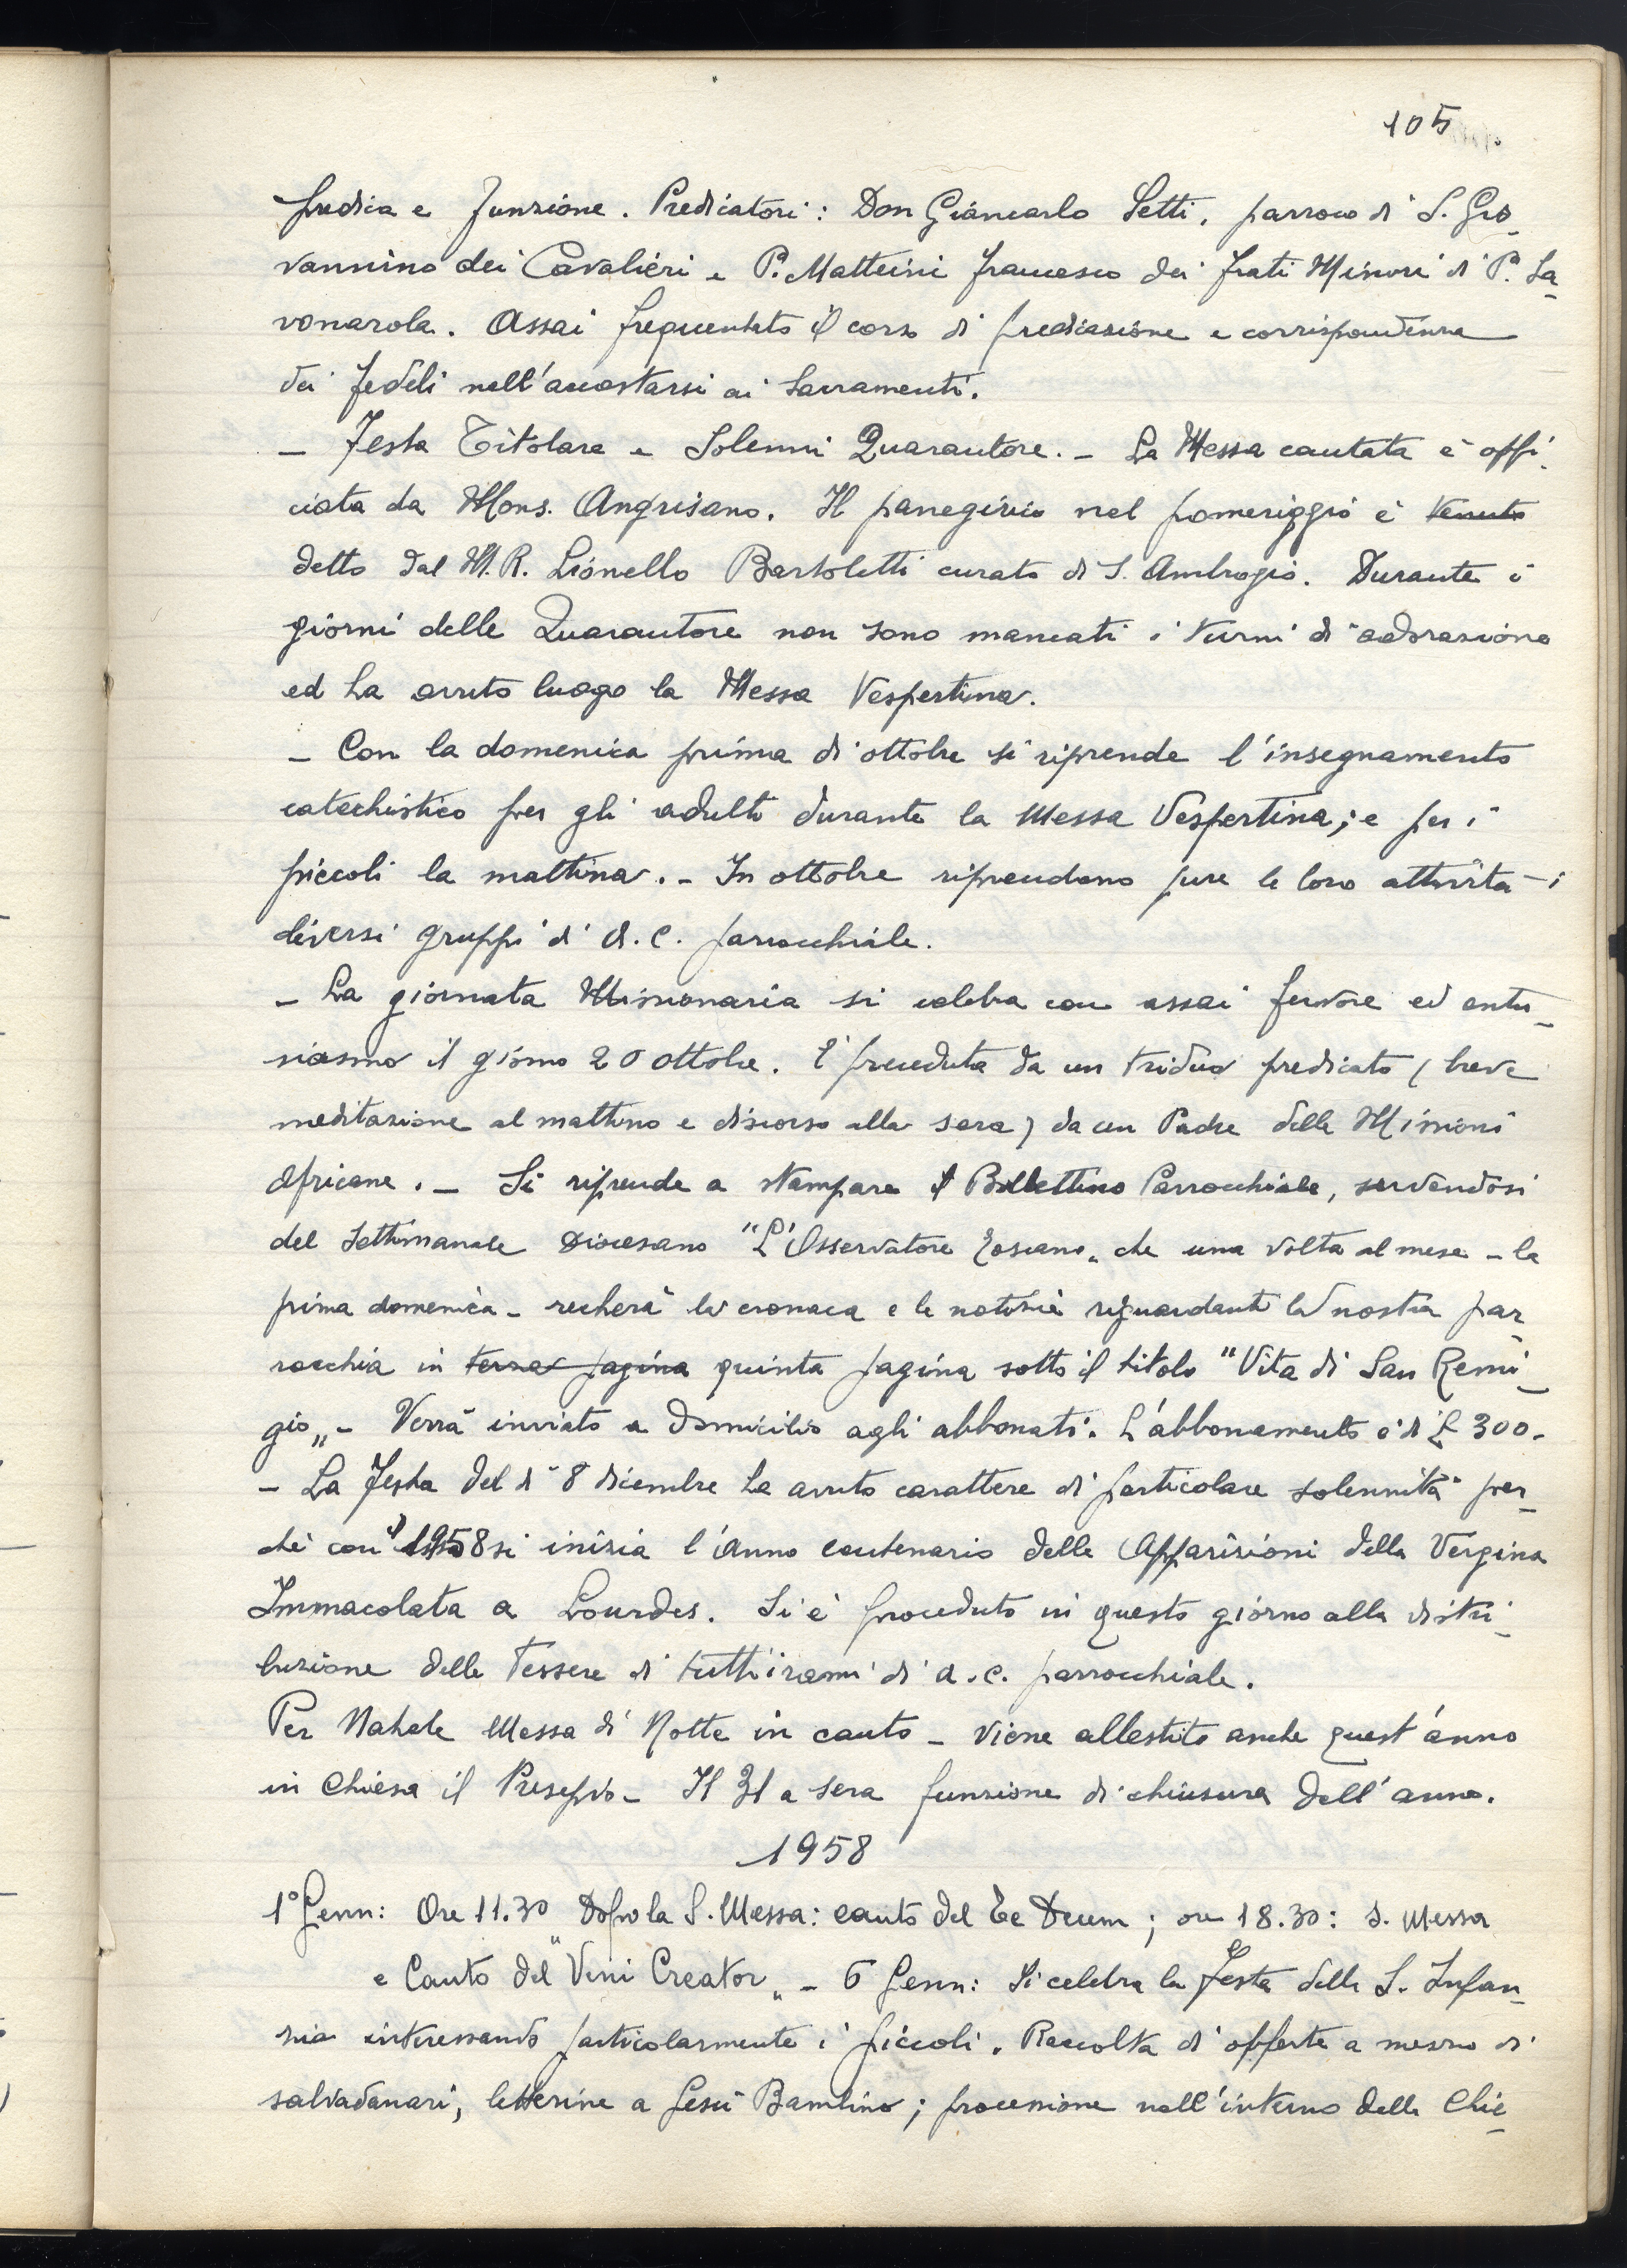 105
predica e funzione. Predicatori: Don Giancarlo Setti, parroco di S. Gio-
vannino dei Cavalieri e P. Matteini Francesco dei Frati Minori di P.a Sa-
vonarola. Assai frequentato il corso di predicazione e corrispondenza
dei fedeli nell'accostarsi ai Sacramenti.
- Festa Titolare e Solenni Quarantore. - La Messa cantata è offi-
ciata da Mons. Angrisano. Il panegirico nel pomeriggio è tenuto
detto dal M.R. Lionello Bartoletti curato di S. Ambrogio. Durante i
giorni delle Quarantore non sono mancati i turni di adorazione
ed ha avuto luogo la Messa Vespertina.
- Con la domenica prima di ottobre si riprende l'insegnamento
catechistico per gli adulti durante la Messa Vespertina; e per i
piccoli la mattina. - In ottobre riprendono pure le loro attività i
diversi gruppi di A.C. parrocchiale.
- La giornata Missionaria si celebra con assai fervore ed entu-
siasmo il giorno 20 ottobre. È preceduta da un triduo predicato (breve
meditazione al mattino e discorso alla sera) da un Padre delle Missioni
Africane. - Si riprende a stampare il Bollettino Parrocchiale, servendosi
del settimanale Diocesano "L'Osservatore Toscano" che una volta al mese - la
prima domenica - recherà la cronaca e le notizie riguardanti la nostra par-
rocchia in terza pagina quinta pagina sotto il titolo "Vita di San Remi-
gio" - Verrà inviato a domicilio agli abbonati. L'abbonamento è di £ 300.
- La Festa del dì 8 dicembre ha avuto carattere di particolare solennità per-
chè con il 1958 si inizia l'Anno centenario delle Apparizioni della Vergine
Immacolata a Lourdes. Si è proceduto in questo giorno alla distri-
buzione delle Tessere di tutti i rami di A.C. parrocchiale.
Per Natale Messa di Notte in canto - viene allestito anche quest'anno
in Chiesa il Presepio - Il 31 a sera funzione di chiusura dell'anno.
1958
1° Genn: Ore 11.30 Dopo la S. Messa: canto del Te Deum; ore 18.30: S. Messa
e Canto del "Veni Creator" - 6 Genn: Si celebra la Festa della S. Infan-
zia interessando particolarmente i piccoli. Raccolta di offerte a mezzo di
salvadanari, letterine a Gesù Bambino; processione nell'interno della Chie-